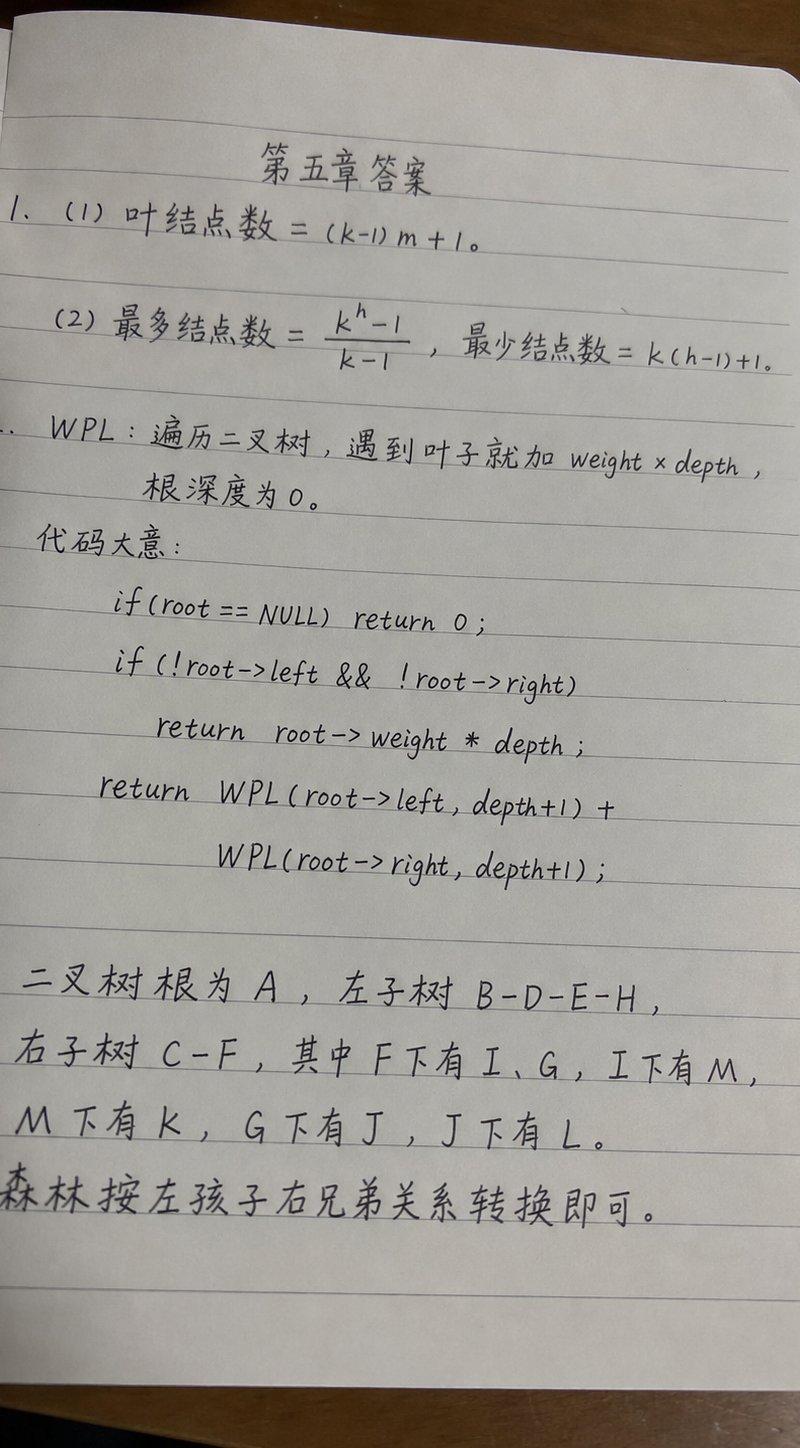 第五章答案
1. (1) 叶结点数 = (k-1) m + 1。
(2) 最多结点数 = \frac{k^h - 1}{k - 1} ，最少结点数 = k(h-1)+1。
WPL：遍历二叉树，遇到叶子就加 weight × depth，
根深度为0。
代码大意：
if(root == NULL) return 0;
if (!root->left && !root->right)
return root->weight * depth;
return WPL(root->left, depth+1) +
WPL(root->right, depth+1);
二叉树根为 A，左子树 B-D-E-H，
右子树 C-F，其中 F下有 I、G，I下有M，
M下有K，G下有J，J下有L。
森林按左孩子右兄弟关系转换即可。